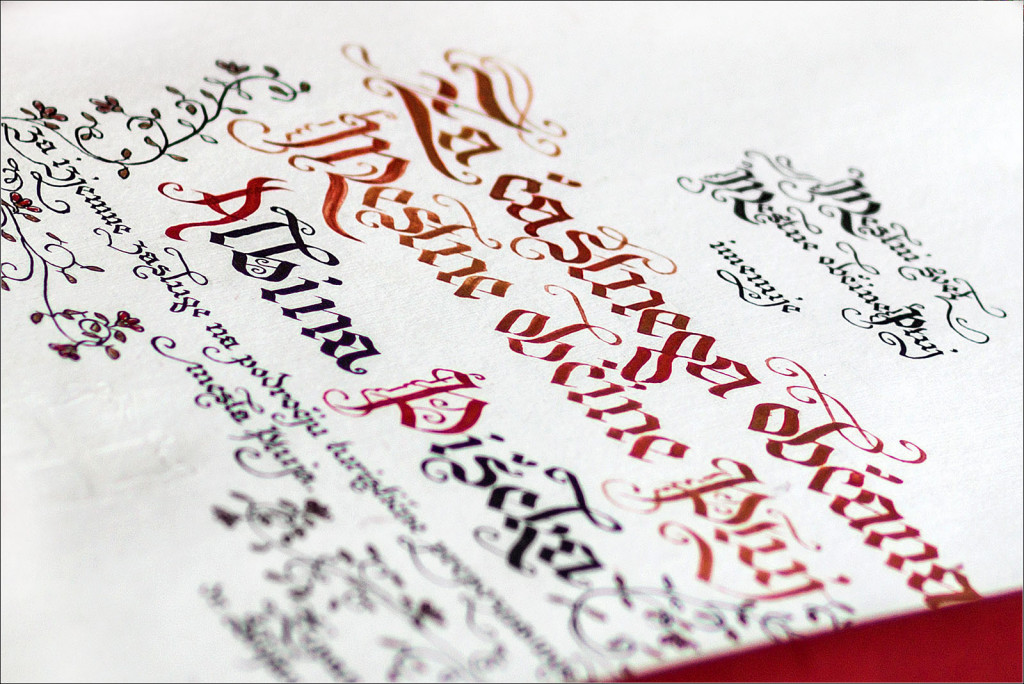 Mestni svet
Mestne občine Ptuj
imenuje
Za častnega občana
Mestne občine Ptuj
Albina Pišeka
za izjemne zasluge na področju turistične prepoznavnosti
mesta Ptuja